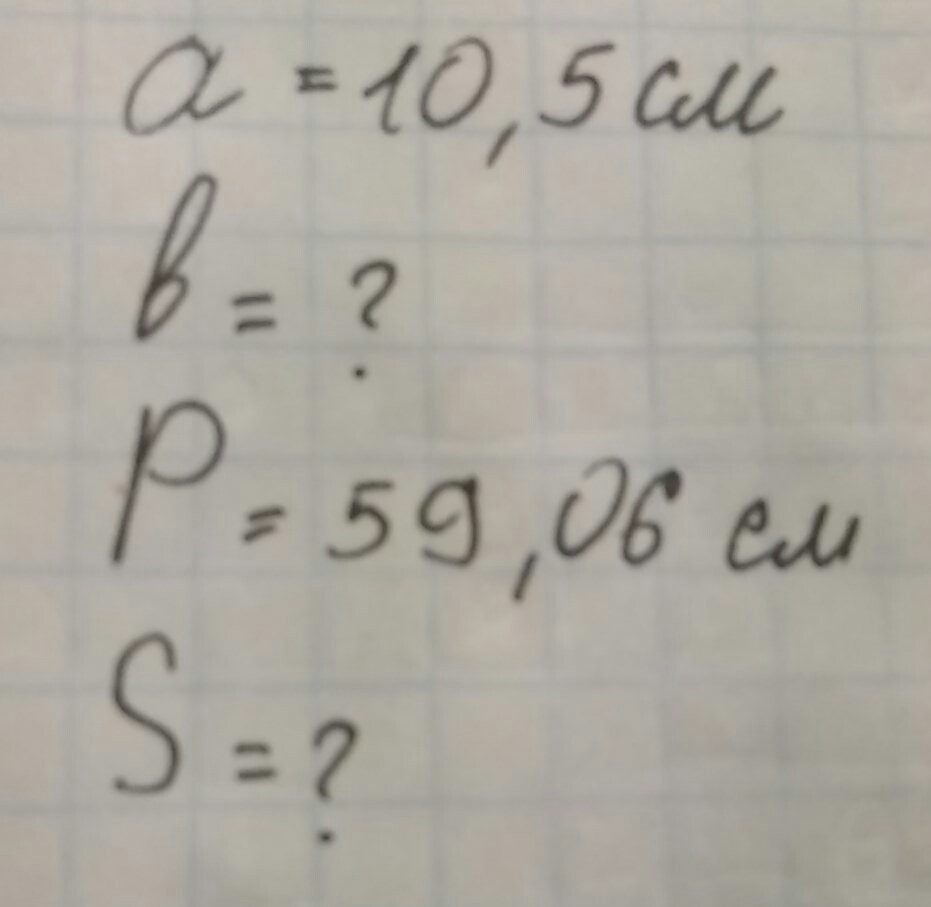 a = 10,5 см
b = ?
P = 59,06 см
S = ?